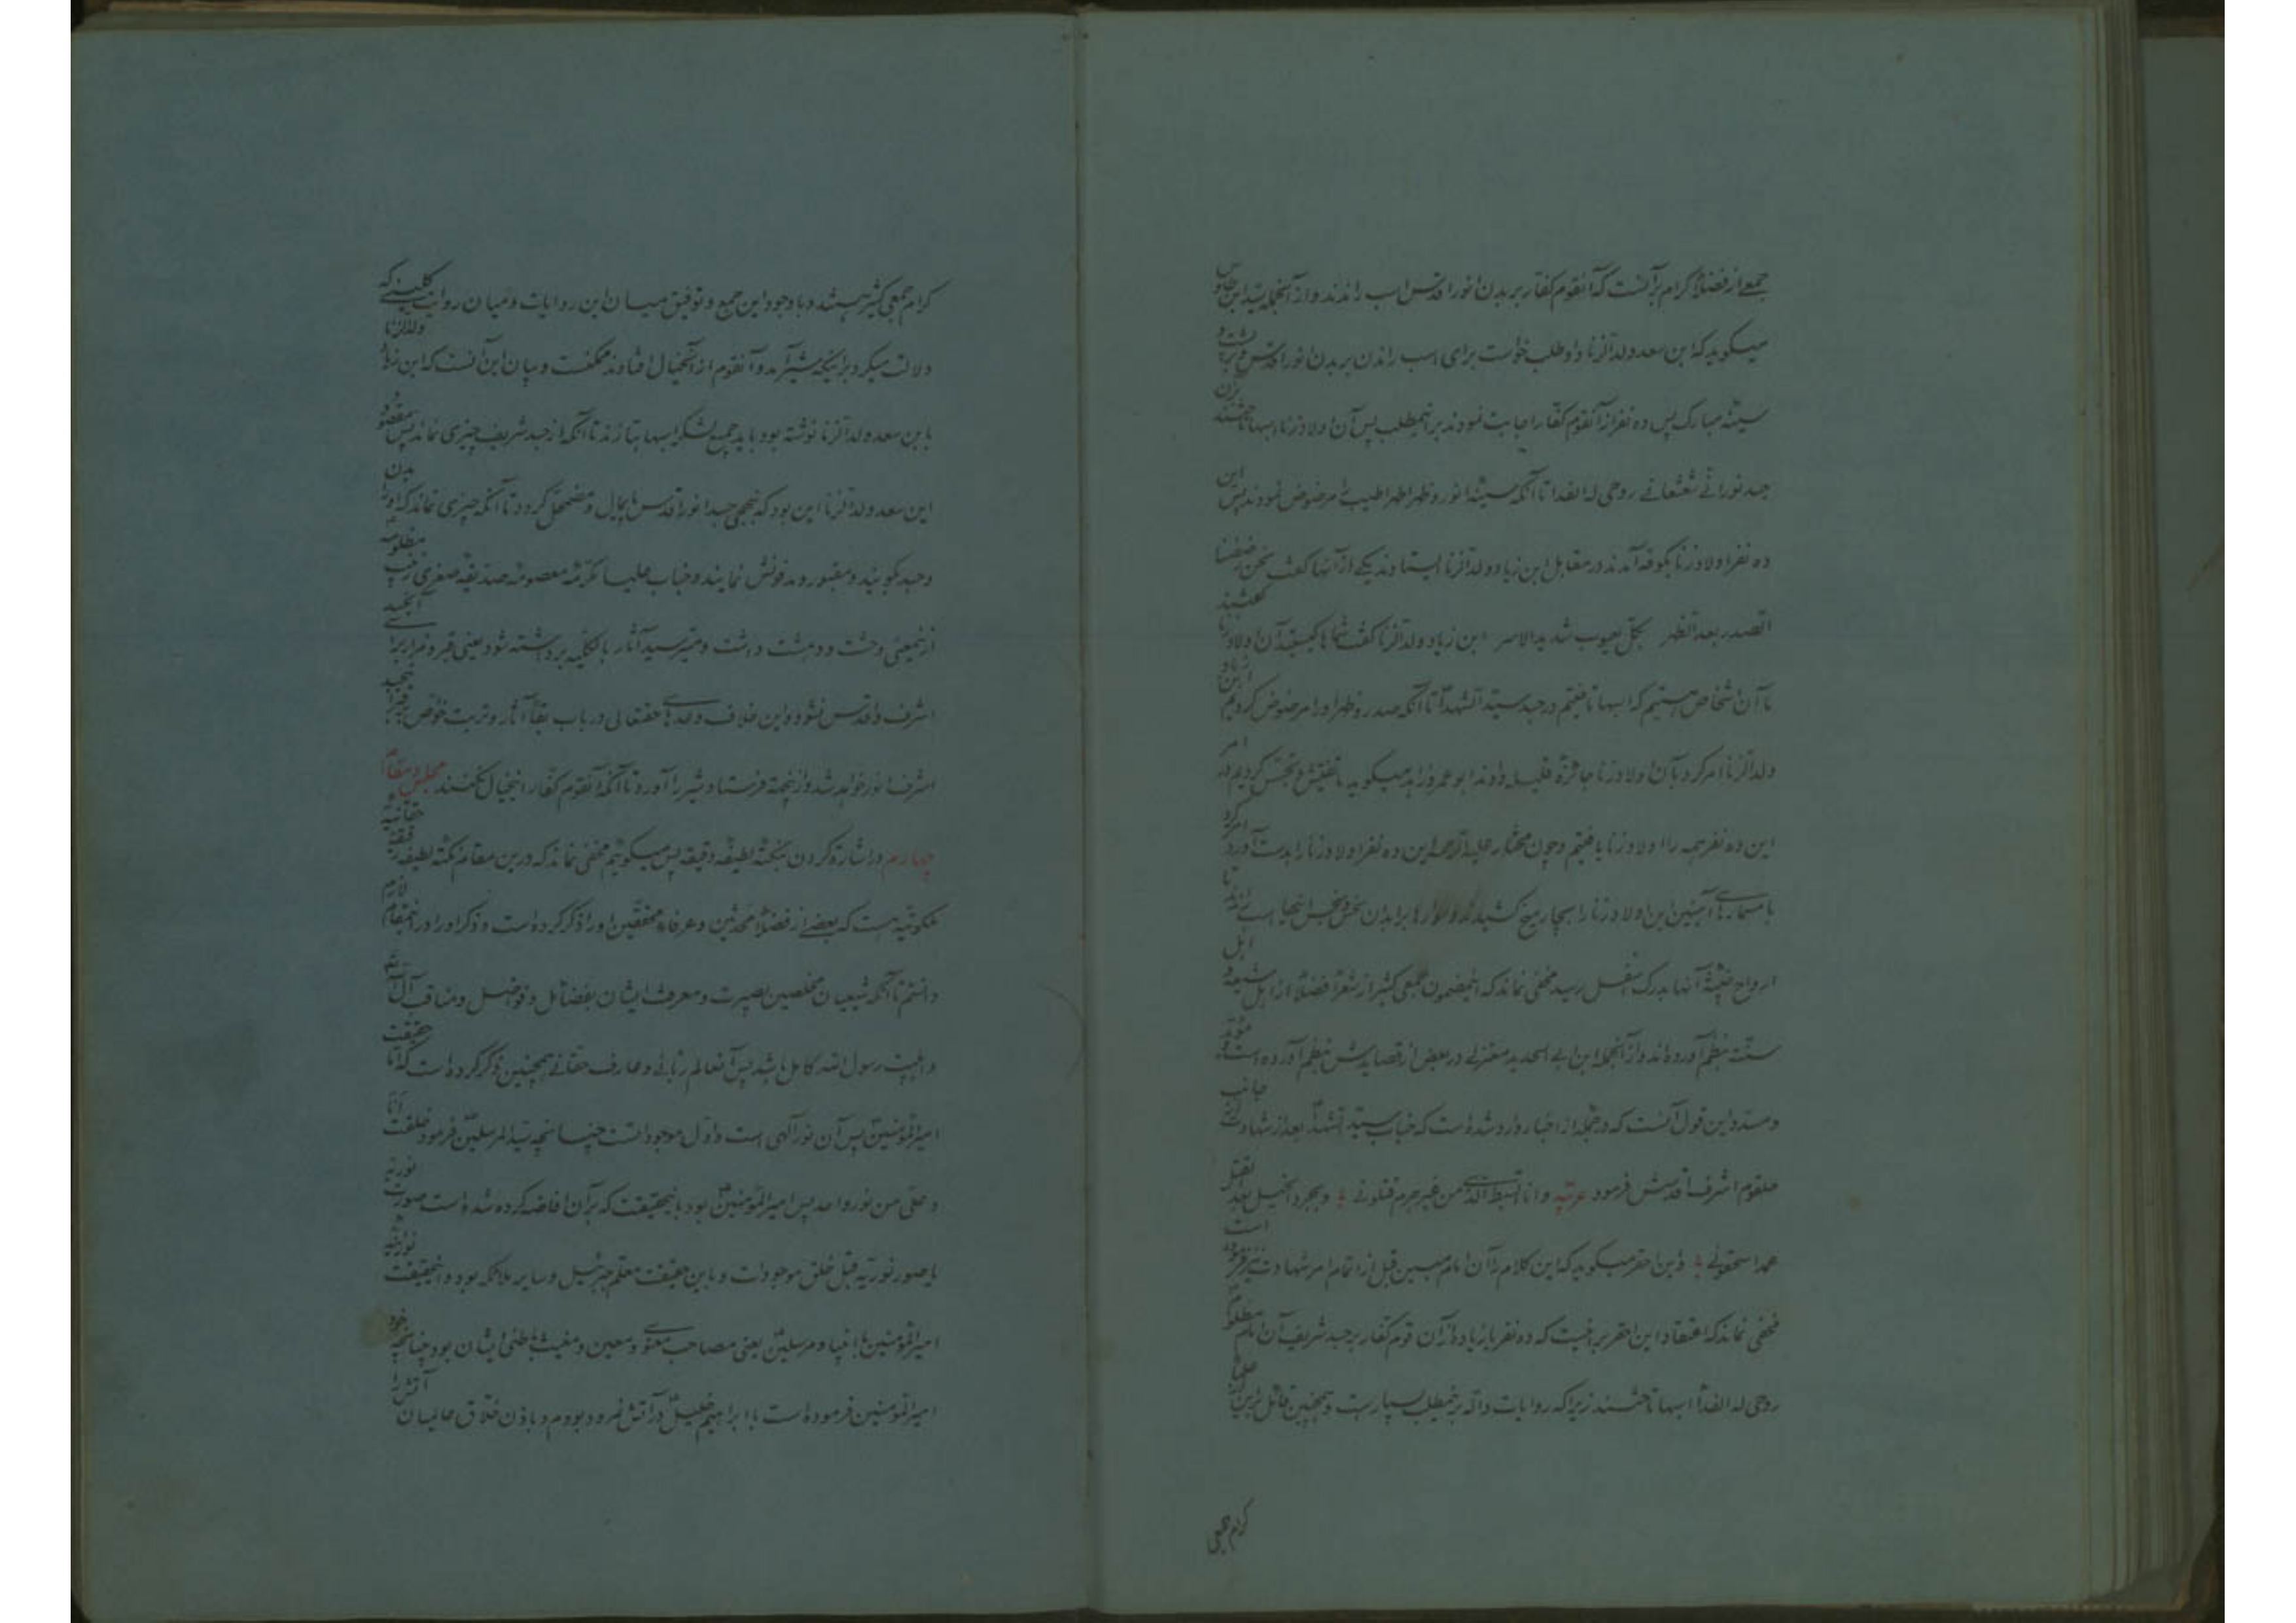 جمعی از فضلاء کرام برآنست که آنقوم کفار بر بدن انور اقدس اسب راندند و از آنجمله سید ابن طاوس
میکوید که ابن سعد ولد الزنا داوطلب خواست برای اسب راندن بر بدن انور اقدس و پشت و
سینه مبارک پس ده نفر از آنقوم کفار اجابت نمودند بر اینمطلب پس آن اولاد زنا اسبها تاختند بر آن
جسد نورانی شعشعانی روحی له الفدا تا آنکه سینه انور و ظهر اطهر اطیب را مرضوض نمودند پس این
ده نفر اولاد زنا بکوفه آمدند در مقابل ابن زیاد ولد الزنا ایستادند یکی از آنها گفت نحن رضضنا
الصدر بعد الظهر بکل یعبوب شدید الاسر ابن زیاد ولد الزنا گفت شماها کیستید آن اولاد زنا گفتند
ما آن اشخاص هستیم که اسبها تاختیم در جسد سید الشهدا تا آنکه صدر و ظهر او را مرضوض کردیم ابن زیاد
ولد الزنا امر کرد بآن اولاد زنا جائزه قلیله دادند ابو عمر زاهد میکوید ما تفتیش و تجسس کردیم در امر
این ده نفر همه را اولاد زنا یافتیم و چون مختار علیه الرحمه این ده نفر اولاد زنا را بدست آورد امر کرد
با مسمارهای آهنین این اولاد زنا را بچهار میخ کشیدند و سوارها بر ابدان نحس و نجس اینها اسب راندند تا
ارواح خبیثه آنها بدرک اسفل رسید مخفی نماند که اینمضمون را جمعی کثیر از شعراء فضلا از اهل شیعه و اهل
سنت بنظم آورده‌اند و از آنجمله ابن ابی الحدید معتزلی در بعض از قصایدش بنظم آورده است و مؤید
و مسدد این قول آنست که در جمله از اخبار وارد شده است که جناب سید الشهدا بعد از شهادت از جانب
حلقوم اشرف اقدسش فرمود عربیه وانا السبط الذی من غیر جرم قتلونی و بجرد الخیل بعد القتل
عمدا سحقونی و این احقر میکوید که این کلام را آن امام مبین قبل از اتمام امر شهادت نیز فرموده است
مخفی نماند که اعتقاد این احقر بر اینست که ده نفر یا زیاده از آن قوم کفار بر جسد شریف آن امام مظلوم
روحی له الفداء اسبها تاختند زیرا که روایات داله بر اینمطلب بسیار است و همچنین قائل بر این از علماء
کرام جمعی
کرام جمعی کثیر هستند و با وجود این جمع و توفیق میان این روایات و میان روایت کلینی که
دلالت میکرد بر اینکه شیر آمد و آنقوم از آنخیال افتادند ممکنست و بیان این آنست که ابن زیاد ولد الزنا
بابن سعد ولد الزنا نوشته بود باید جمیع لشکر اسبها بتازند تا آنکه از جسد شریف چیزی نماند پس مقصود
ابن سعد ولد الزنا این بود که بنحوی جسد انور اقدس پایمال و مضمحل گردد تا آنکه چیزی نماند که او را بدن
و جسد کویند و مقبور و مدفونش نمایند و جناب علیا مکرمه معصومه صدیقه صغری زینب مظلومه
از اینمعنی وحشت و دهشت داشت و میترسید آثار بالکلیه برداشته شود یعنی قبر و مزار برای آنجسد
اشرف و اقدس نشود و این خلاف وعدهای حقتعالی در باب بقاء آثار و تربت خواص
اشرف انور خواهد شد و از اینجهة فرستاد و شیر را آورد تا آنکه آنقوم کفار اینخیال نکنند مجلس و مقام
چهارم در اشاره کردن بنکته لطیفه دقیقه پس میکویم مخفی نماند که درین مقام نکته لطیفه دقیقه حقانیه
ملکوتیه است که بعضی از فضلاء محدثین و عرفاء محققین او را ذکر کرده است و ذکر او را در اینمقام لازم
دانستم تا آنکه شیعیان مخلصین بصیرت و معرفت ایشان بفضائل و فواضل و مناقب آل الله
و اهلبیت رسول الله کامل باشد پس آنعالم ربانی و عارف حقانی همچنین ذکر کرده است که اما حقیقت
امیر المؤمنین پس آن نور الهی است و اول موجوداتست چنانچه سید المرسلین فرمود خلقت انا
و علی من نور واحد پس امیر المؤمنین بود باینحقیقت که بر آن افاضه کرده شده است صورت نوریه
یا صور نوریه قبل خلق موجودات و باین حقیقت معلم جبرئیل و سایر ملائکه بود و اینحقیقت نورانیه
امیر المؤمنین با انبیاء و مرسلین یعنی مصاحب معنوی و معین و مغیث باطنی ایشان بود چنانچه خود
امیر المؤمنین فرموده است با ابراهیم خلیل در آتش نمرود بودم و باذن خلاق عالمیان آتش را